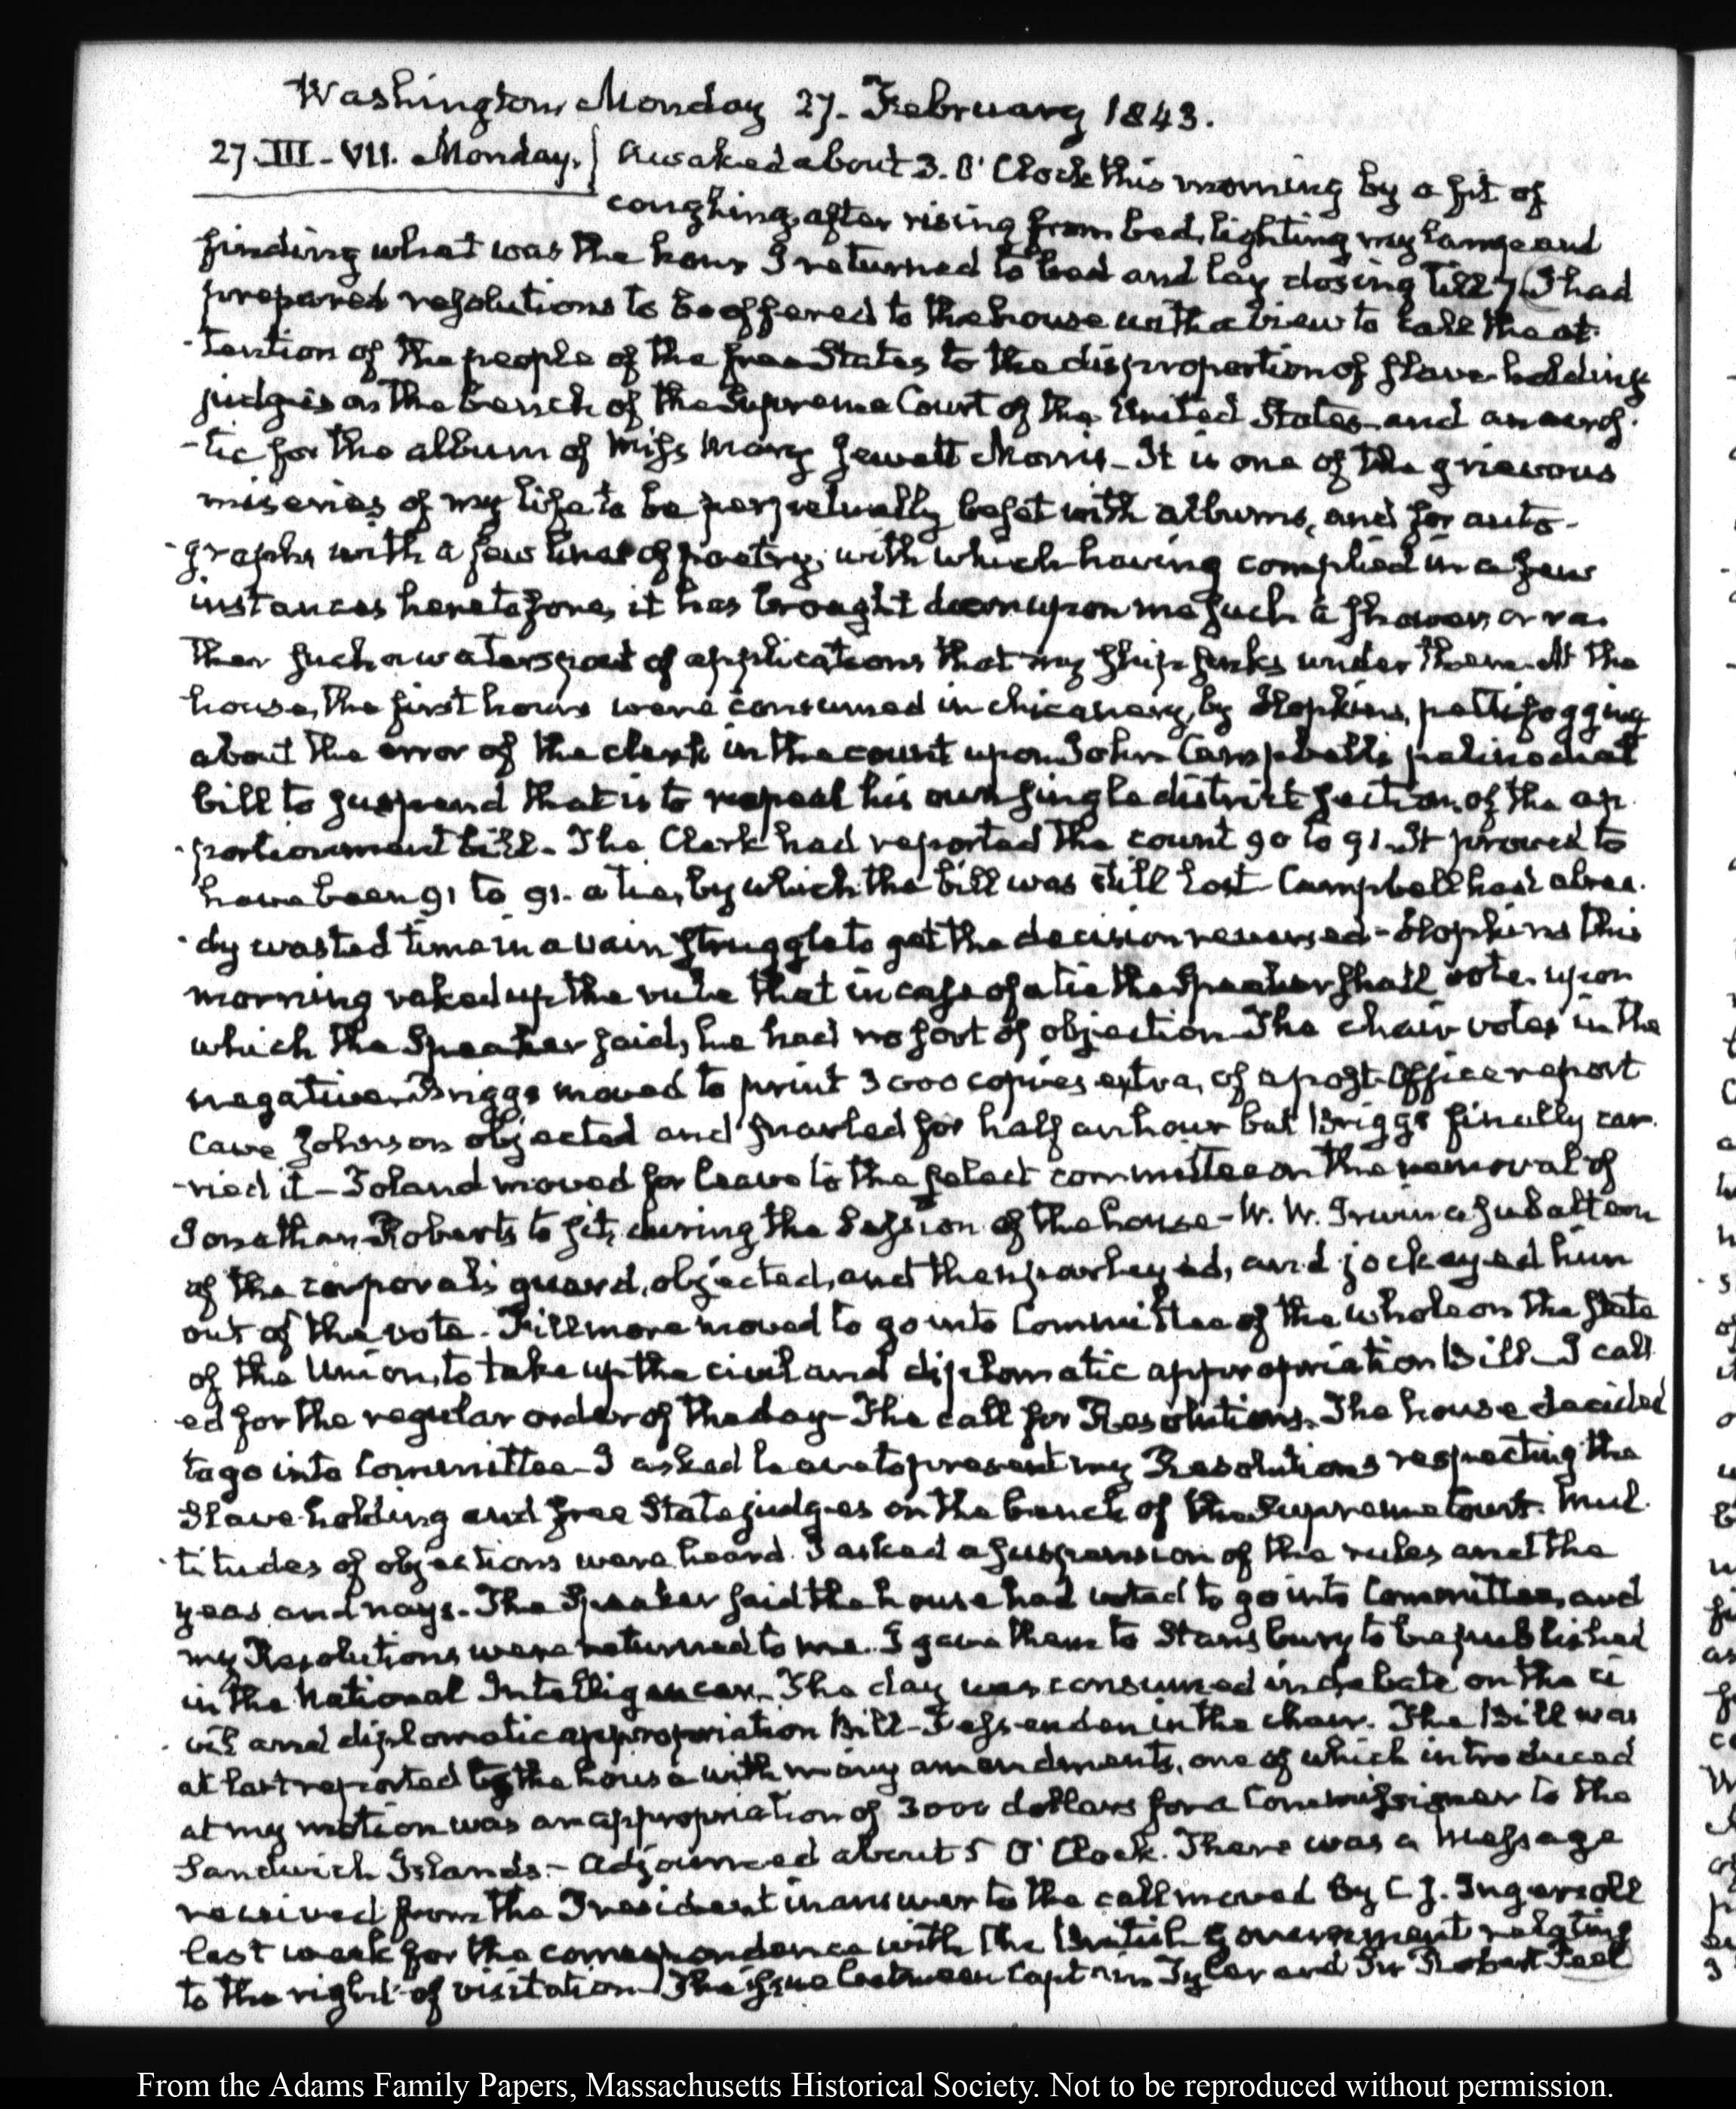 Washington Monday 27. February 1843.
27. III- VII. Monday. Awaked about 3. O' Clock this morning by a fit of
coughing, after rising from bed, lighting my lamp and
finding what was the hour I returned to bed and lay dosing till 7. I had
prepared resolutions to be offered to the house with a view to call the at-
tention of the people of the free States to the disproportion of slave-holding
judges on the bench of the Supreme Court of the United States and an acros-
-tic for the album of Miss Mary Jewett Morris- It is one of the grievous
miseries of my life to be perpetually beset with albums, and for auto-
graphs with a few lines of poetry, with which having complied in a few
instances heretofore, it has brought down upon me such a shower, or ra-
ther such a waterspout of applications that my ship sinks under them. At the
house, the first hours were consumed in chicanery, by Hopkins, pettifogging
about the error of the clerk in the count upon John Campbell's palinodial
bill to suspend that is to repeal his own single district section, of the ap-
portionment bill- The Clerk had reported the count 90 to 91. It proved to
have been 91 to 91. a tie, by which the bill was still lost- Campbell had alrea-
dy wasted time in a vain struggle to get the decision reversed- Hopkins this
morning raked up the rule that in case of a tie the Speaker shall vote. upon
which the Speaker said, he had no sort of objection- The chair votes in the
negative. Briggs moved to print 3000 copies extra, of a post-Office report
Cave Johnson objected and snarled for half an hour but Briggs finally car-
-ried it- Toland moved for leave to the select committee on the removal of
Jonathan Roberts to sit, during the Session of the house- W. W. Irwin a subaltern
of the corporal's guard, objected, and then parleyed, and jockeyed him
out of the vote. Fillmore moved to go into Committee of the whole on the State
of the Union, to take up the civil and diplomatic appropriation Bill- I call-
ed for the regular order of the day- The call for Resolutions. The house decided
to go into Committee- I asked leave to present my Resolutions respecting the
Slave-holding and free State judges on the bench of the Supreme Court. Mul-
titudes of objections were heard. I asked a suspension of the rules and the
yeas and nays. The Speaker said the house had voted to go into Committee, and
my Resolutions were returned to me. I gave them to Stansbury to be published
in the National Intelligencer- The day was consumed in debate on the ci-
vil and diplomatic appropriation Bill- Fessenden in the chair. The Bill was
at last reported to the house with many amendments, one of which introduced
at my motion was an appropriation of 3000 dollars for a Commissioner to the
Sandwich Islands- Adjourned about 5 O' Clock. There was a Message
received from the President in answer to the call moved by C J. Ingersoll
last week for the correspondence with the British Government relating
to the right of visitation- The issue between Captain Tyler and Sir Robert Peel
From the Adams Family Papers, Massachusetts Historical Society. Not to be reproduced without permission.